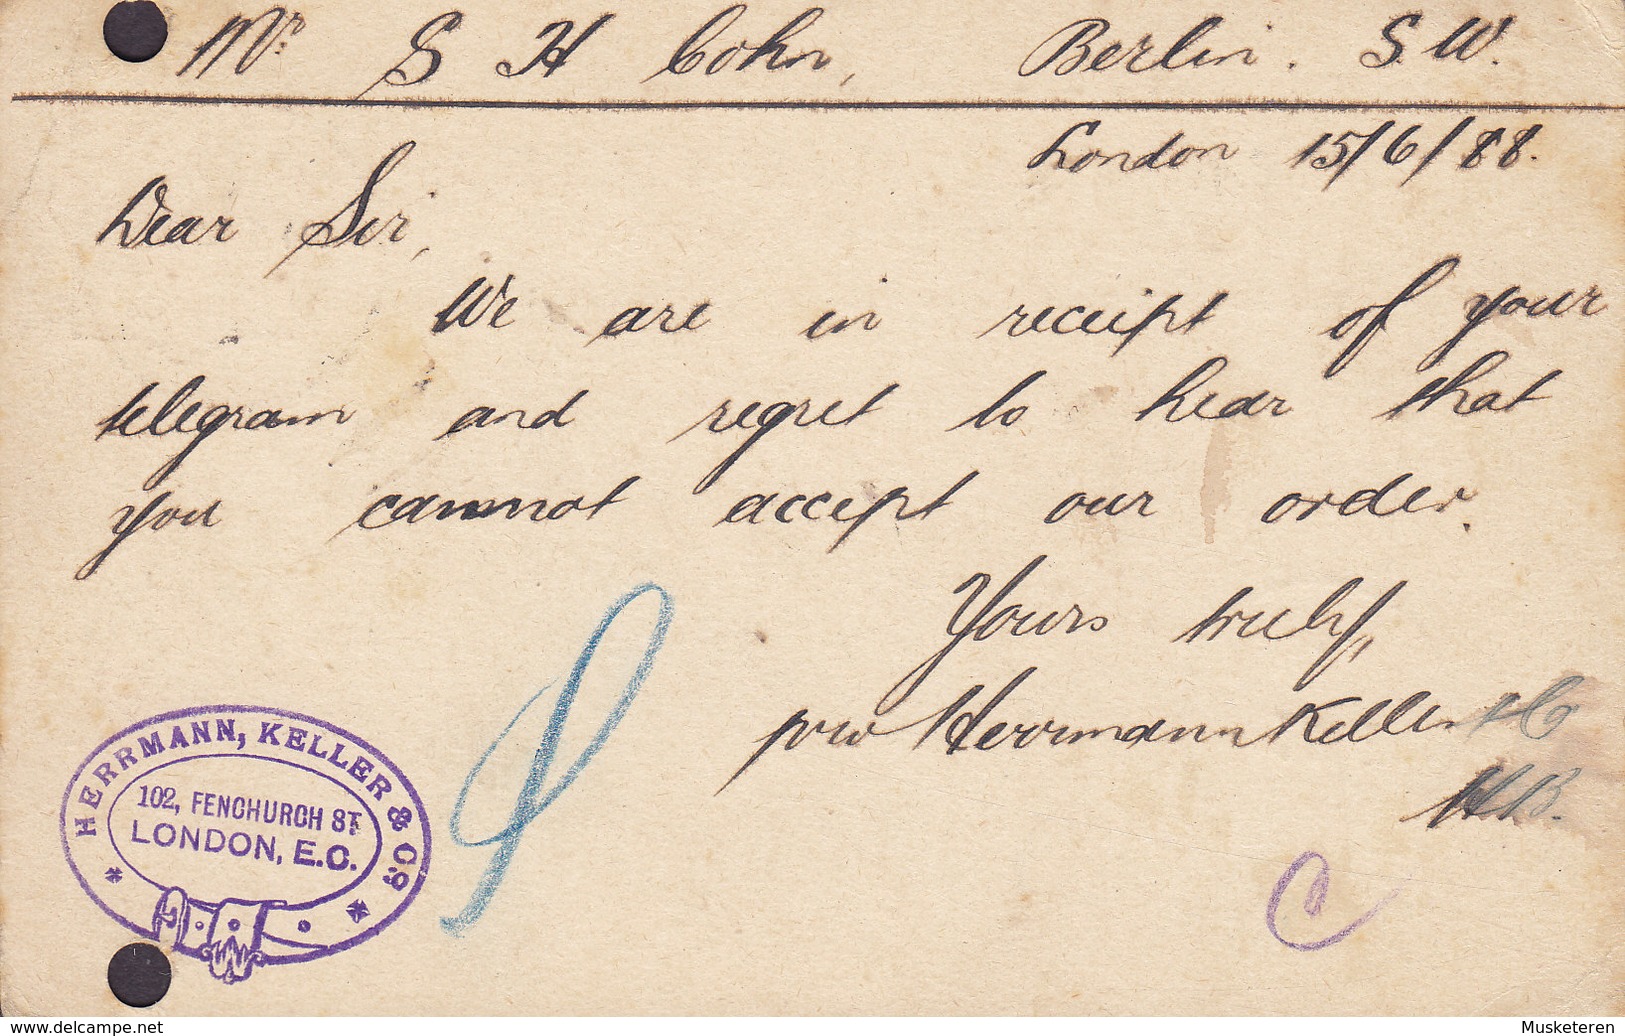 Mr. S H Cohn, Berlin. S.W.
London 15/6/88.
Dear Sir,
We are in receipt of your
telegram and regret to hear that
you cannot accept our order.
Yours truly,
pro Herrmann Keller & Co
H.B.
HERRMANN, KELLER & CO.
102, FENCHURCH ST.
LONDON, E.C.
C
www.delcampe.net
Musketeren